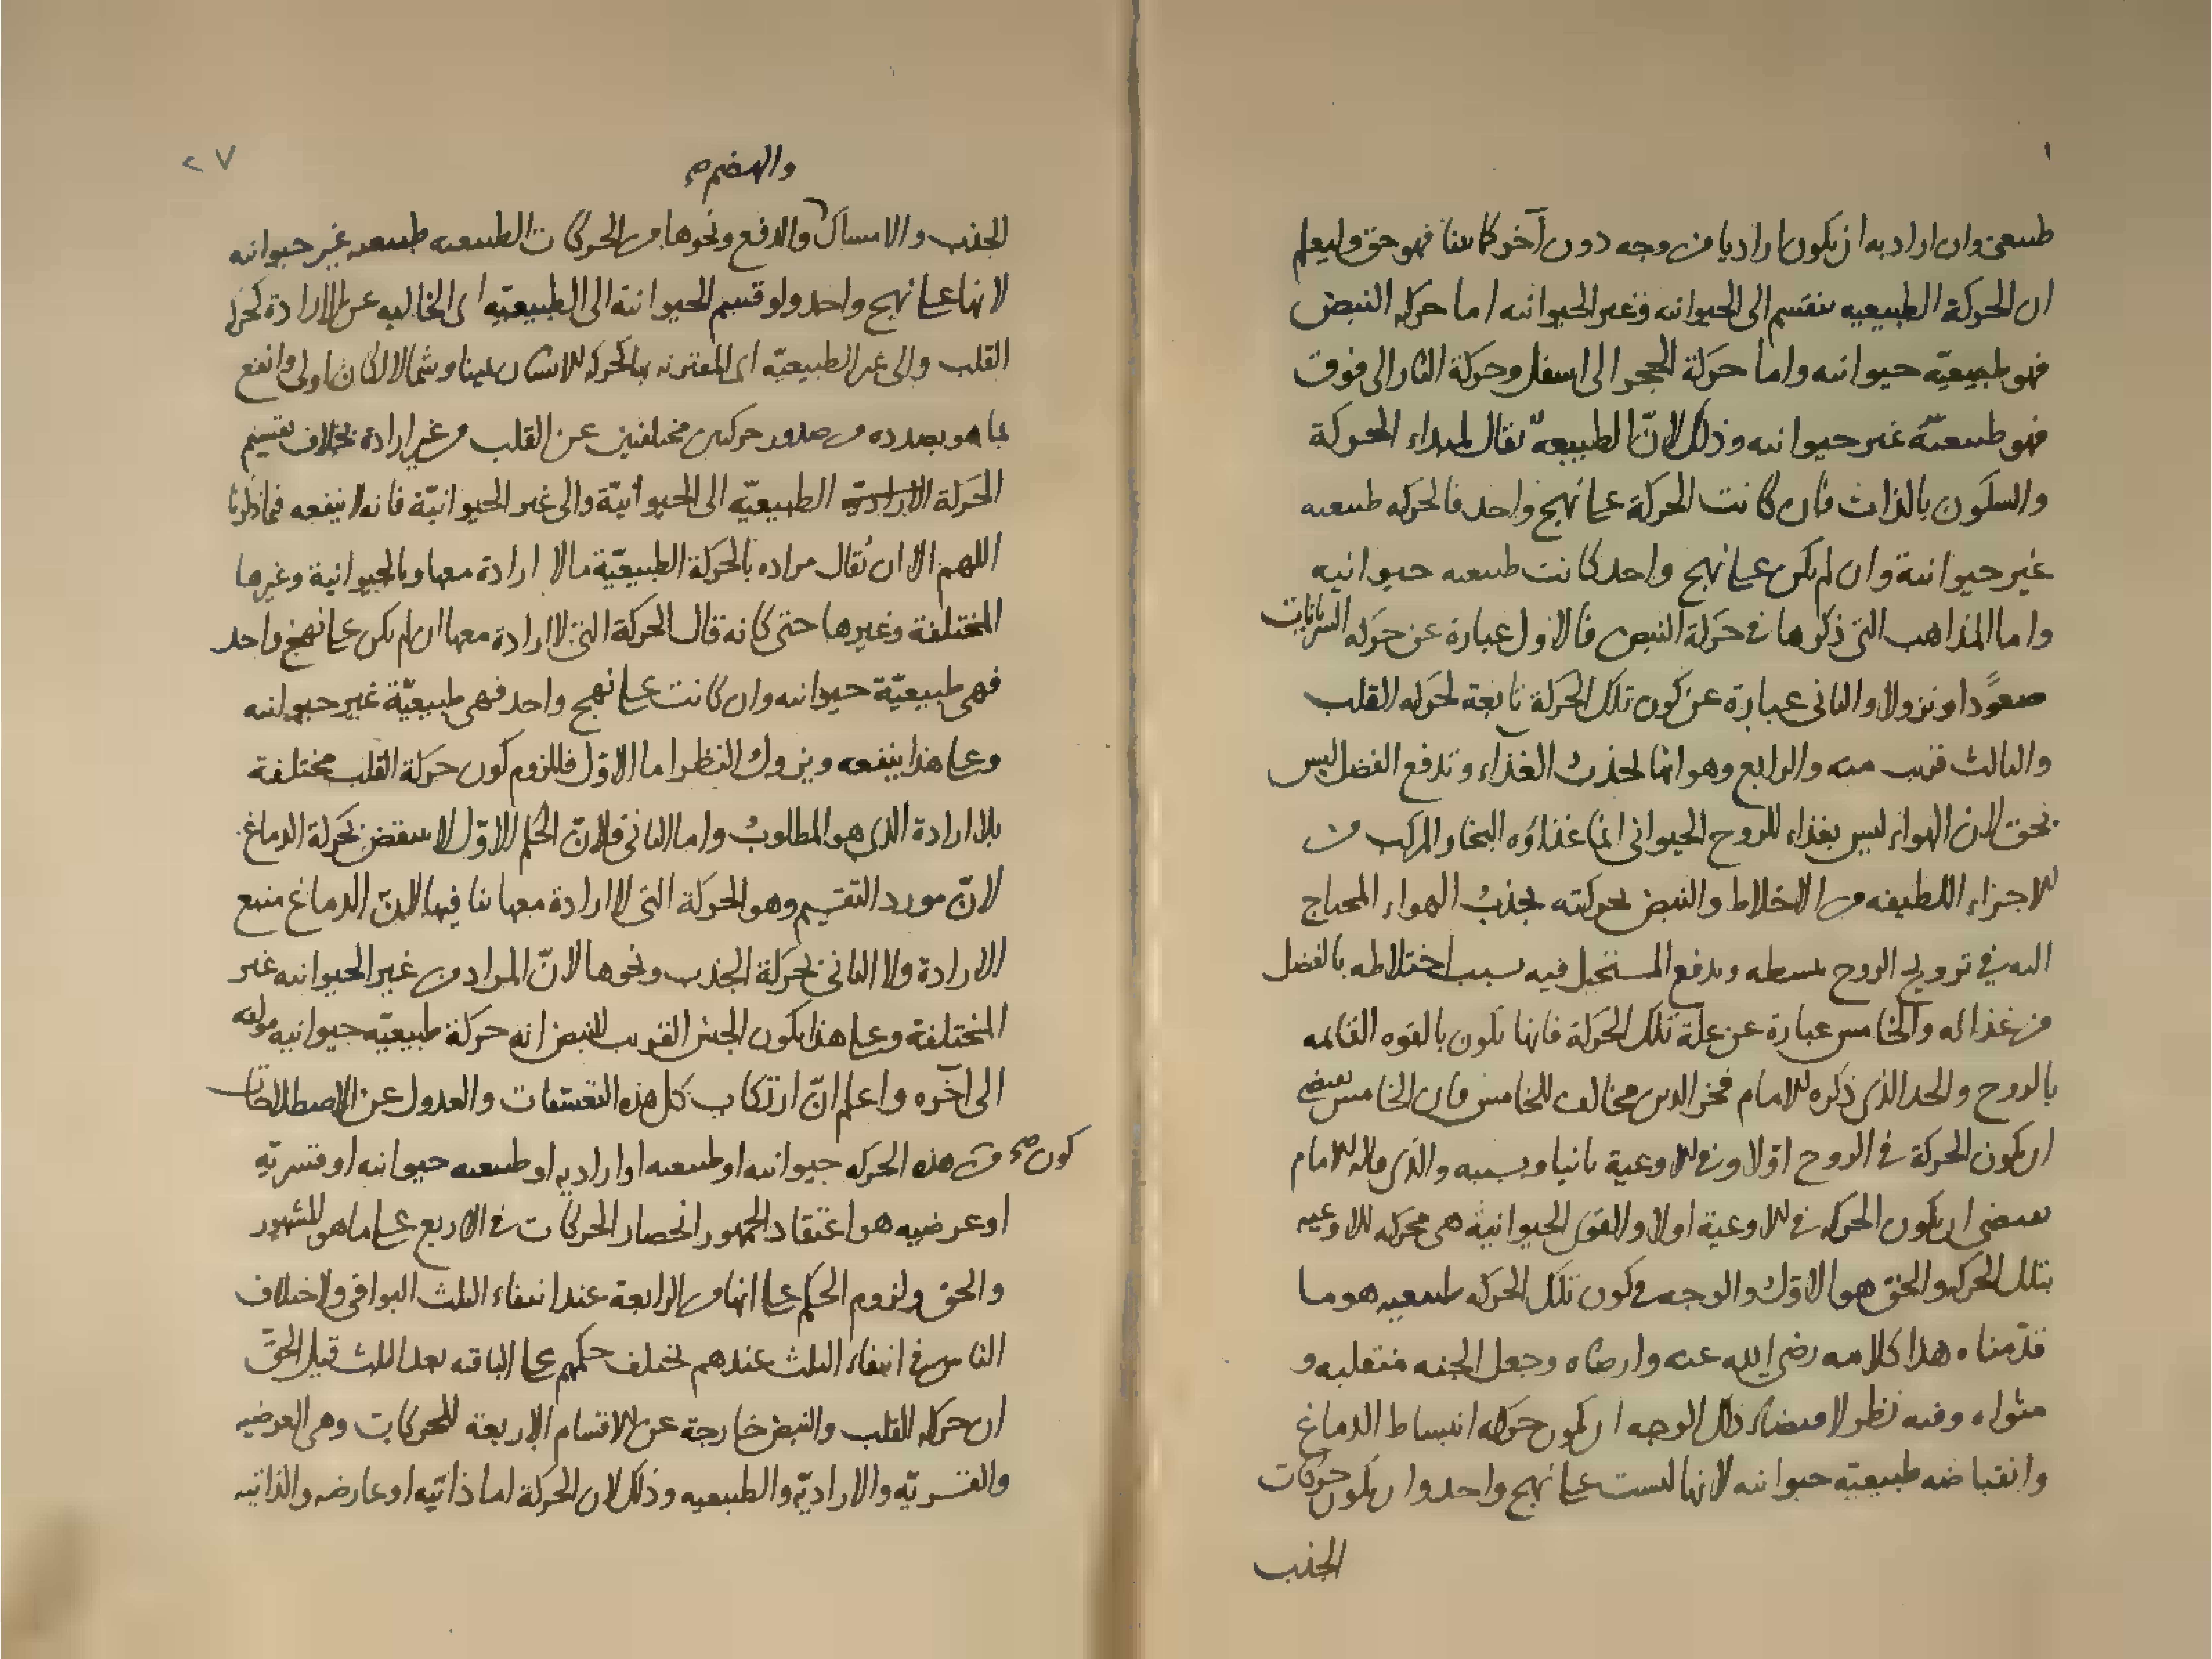 طبيعى وان اراد به ان يكون اراديا من وجه دون آخر كما بينا فهو حق وليعلم
ان الحركة الطبيعيه تنقسم الى الحيوانيه وغير الحيوانيه اما حركه النبض
فهو طبيعيّة حيوانيه واما حركة الحجر الى اسفل وحركة النار الى فوق
فهو طبيعيّة غير حيوانيه وذلك لانّ الطبيعة تقال لمبداء الحركة
والسكون بالذات فان كانت الحركة على نهج واحد فالحركه طبيعيه
غير حيوانية وان لم يكن على نهج واحد كانت طبيعيه حيوانيه
واما المذاهب التى ذكرها فى حركة النبض فالاول عبارة عن حركه الشريانات
صعودا ونزولا والثانى عبارة عن كون تلك الحركة تابعة لحركه القلب
والثالث قريب منه والرابع وهو انها لجذب الغذاء وتدفع الفضل ليس
بحق لان الهواء ليس بغذاء للروح الحيوانى انما غذاؤه البخار المركب من
الاجزاء اللطيفه من الاخلاط والنبض بحركته يجذب الهواء المحتاج
اليه فى ترويح الروح ببسطه ويدفع المستحيل فيه بسبب اختلاطه بالفضل
من غذائه والخامس عبارة عن علة تلك الحركة فانها تكون بالقوه القائمه
بالروح والحد الذى ذكره الامام فخر الدين مخالف للخامس فان الخامس يقتضى
ان يكون الحركة فى الروح اولا وفى الاوعية ثانيا وبسببه والذى قاله الامام
يقتضى ان يكون الحركه فى الاوعية اولا والقوى الحيوانية هى محركه الاوعيه
بتلك الحركه والحق هو الاول والوجه فى كون تلك الحركه طبيعيه هو ما
قدّمناه هذا كلامه رضى الله عنه وارضاه وجعل الجنه منقلبه و
مثواه وفيه نظر لاقتضاء ذلك الوجه ان يكون حركه انبساط الدماغ
وانقباضه طبيعيّه حيوانيه لانها ليست على نهج واحد وان يكون حركات
الجذب
٢٧
والهضم صح
الجذب والامساك والدفع ونحوها من الحركات الطبيعيه طبيعيه غير حيوانيه
لانها على نهج واحد ولو قسم الحيوانية الى الطبيعيّه اى الخاليه عن الارادة كحركه
القلب والى غير الطبيعيّة اى المقترنه بها كحركه الانسان يمينا وشمالا لكان اولى وانفع
بما هو بصدده من صدور حركتين مختلفتين عن القلب من غير ارادة بخلاف تقسيم
الحركة الطبيعيّه الى الحيوانيّة والى غير الحيوانيّة فانه لا ينفعه فيما ذكرنا
اللهم الا ان يُقال مراده بالحركة الطبيعيّة ما لا ارادة معها وبالحيوانية وغيرها
المختلفة وغيرها حتى كانه قال الحركة التى لا ارادة معها ان لم يكن على نهج واحد
فهى طبيعيّة حيوانيه وان كانت على نهج واحد فهى طبيعيّة غير حيوانيه
وعلى هذا ينفعه ويزول النظر اما الاوّل فللزوم كون حركة القلب مختلفة
بلا ارادة الذى هو المطلوب واما الثانى فلانّ الحكم الاوّل لا ينتقض بحركة الدماغ
لانّ مورد التقسيم وهو الحركة التى لا ارادة معها ينافيها لانّ الدماغ منبع
الارادة ولا الثانى بحركة الجذب ونحوها لانّ المراد من غير الحيوانيه غير
المختلفة وعلى هذا يكون الجنس القريب للنبض انه حركة طبيعيّه حيوانيه مولفه
الى آخره واعلم انّ ارتكاب كل هذه التعسّفات والعدول عن الاصطلاحات
كون صح من هذه الحركه حيوانيه او طبيعيه او اراديه او طبيعيه حيوانيه او قسريّه
او عرضيه هو اعتقاد الجمهور انحصار الحركات فى الاربع على ما هو المشهور
والحق ولزوم الحكم على انها من الرابعة عند انتفاء الثلث البواقى ولاختلاف
الناس فى انتفاء الثلث عندهم يختلف حكمهم على الباقيه بعد الثلث قيل الحق
ان حركه القلب والنبض خارجة عن الاقسام الاربعة للحركات وهى العرضيه
والقسريّه والاراديّه والطبيعيه وذلك لان الحركة اما ذاتيّه او عارضه والذاتيه